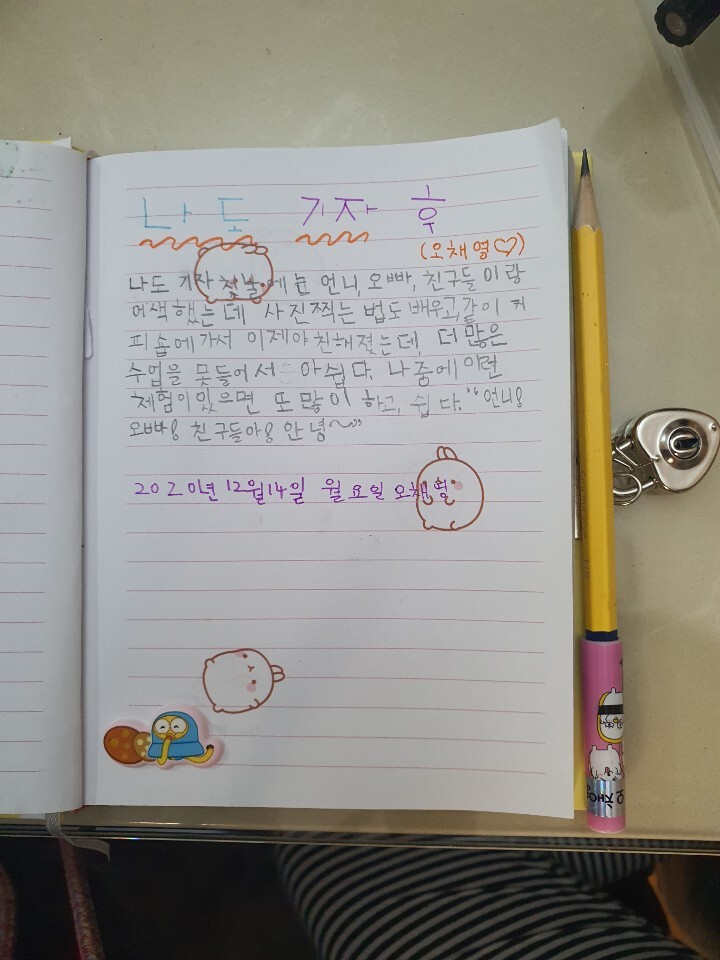 나도 기자 후
(오채영♡)
나도 기자 첫날에는 언니, 오빠, 친구들이랑
어색했는데 사진찍는 법도 배우고, 같이 커
피숍에가서 이제야 친해졌는데, 더 많은
수업을 못들어서 아쉽다. 나중에 이런
체험이 있으면 또 많이 하고, 싶다. "언니!
오빠! 친구들아! 안녕~"
2020년 12월14일 월요일 오채영
오채영